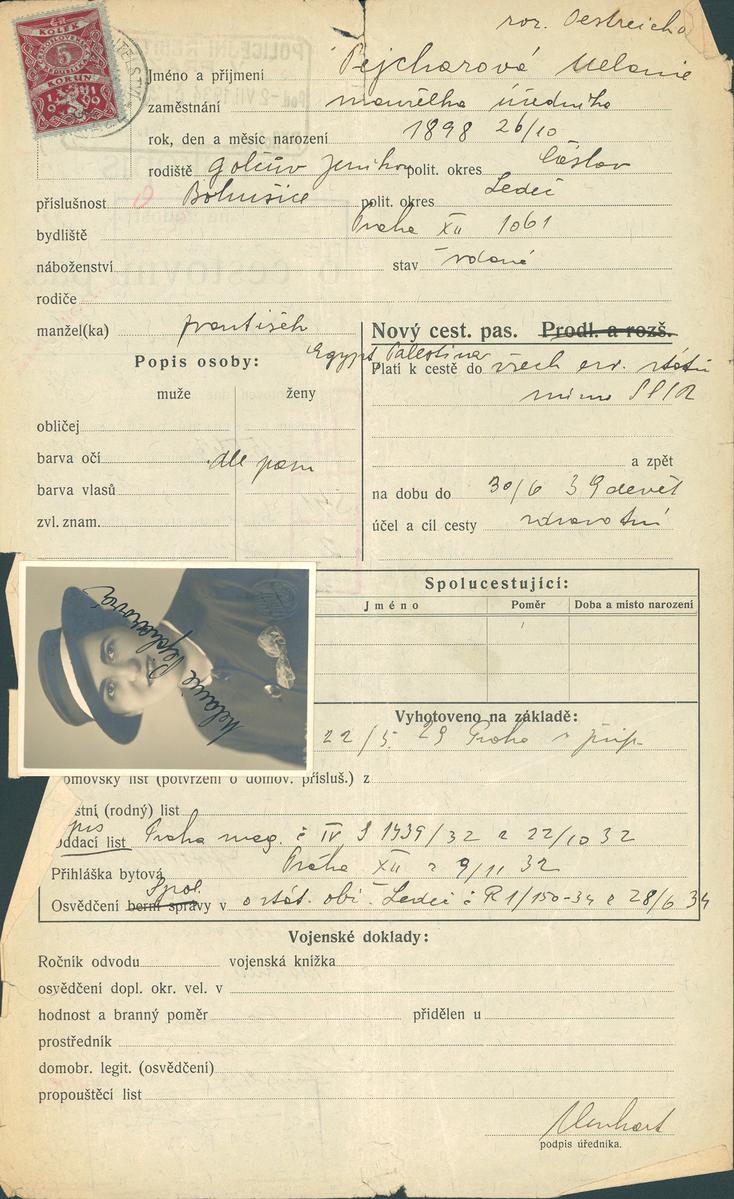 roz. Oestreicho
ČR
KOLEK
5
KORUN
Jméno a přijmení Pejcharová Melanie
zaměstnání manželka úředníka
rok, den a měsíc narození 1898 26/10
rodiště Golčův Jeníkov polit. okres Čáslav
příslušnost Bohušice polit. okres Ledeč
bydliště Praha XII 1061
náboženství stav vdaná
rodiče
manžel(ka) František
Nový cest. pas. Prodl. a rozš.
Egypt Palestina
Platí k cestě do všech evr. států
mimo SSSR
a zpět
na dobu do 30/6 39 devět
účel a cíl cesty zdravotní
Popis osoby:
muže ženy
obličej
barva očí dle pasu
barva vlasů
zvl. znam.
Melanie Pejcharová
Spolucestující:
Jméno Poměr Doba a místo narození
Vyhotoveno na základě:
22/5 29 Praha
omovský list (potvrzení o domov. přísluš.) z
stní (rodný) list
pis
oddací list Praha mag. č IV S 1939/32 z 22/10 32
Přihláška bytová Praha XII z 9/11 32
Spol.
Osvědčení berní správy v o stát. obč. Ledeč č R1/150-34 z 28/6 34
Vojenské doklady:
Ročník odvodu vojenská knížka
osvědčení dopl. okr. vel. v
hodnost a branný poměr přidělen u
prostředník
domobr. legit. (osvědčení)
propouštěcí list
podpis úředníka.